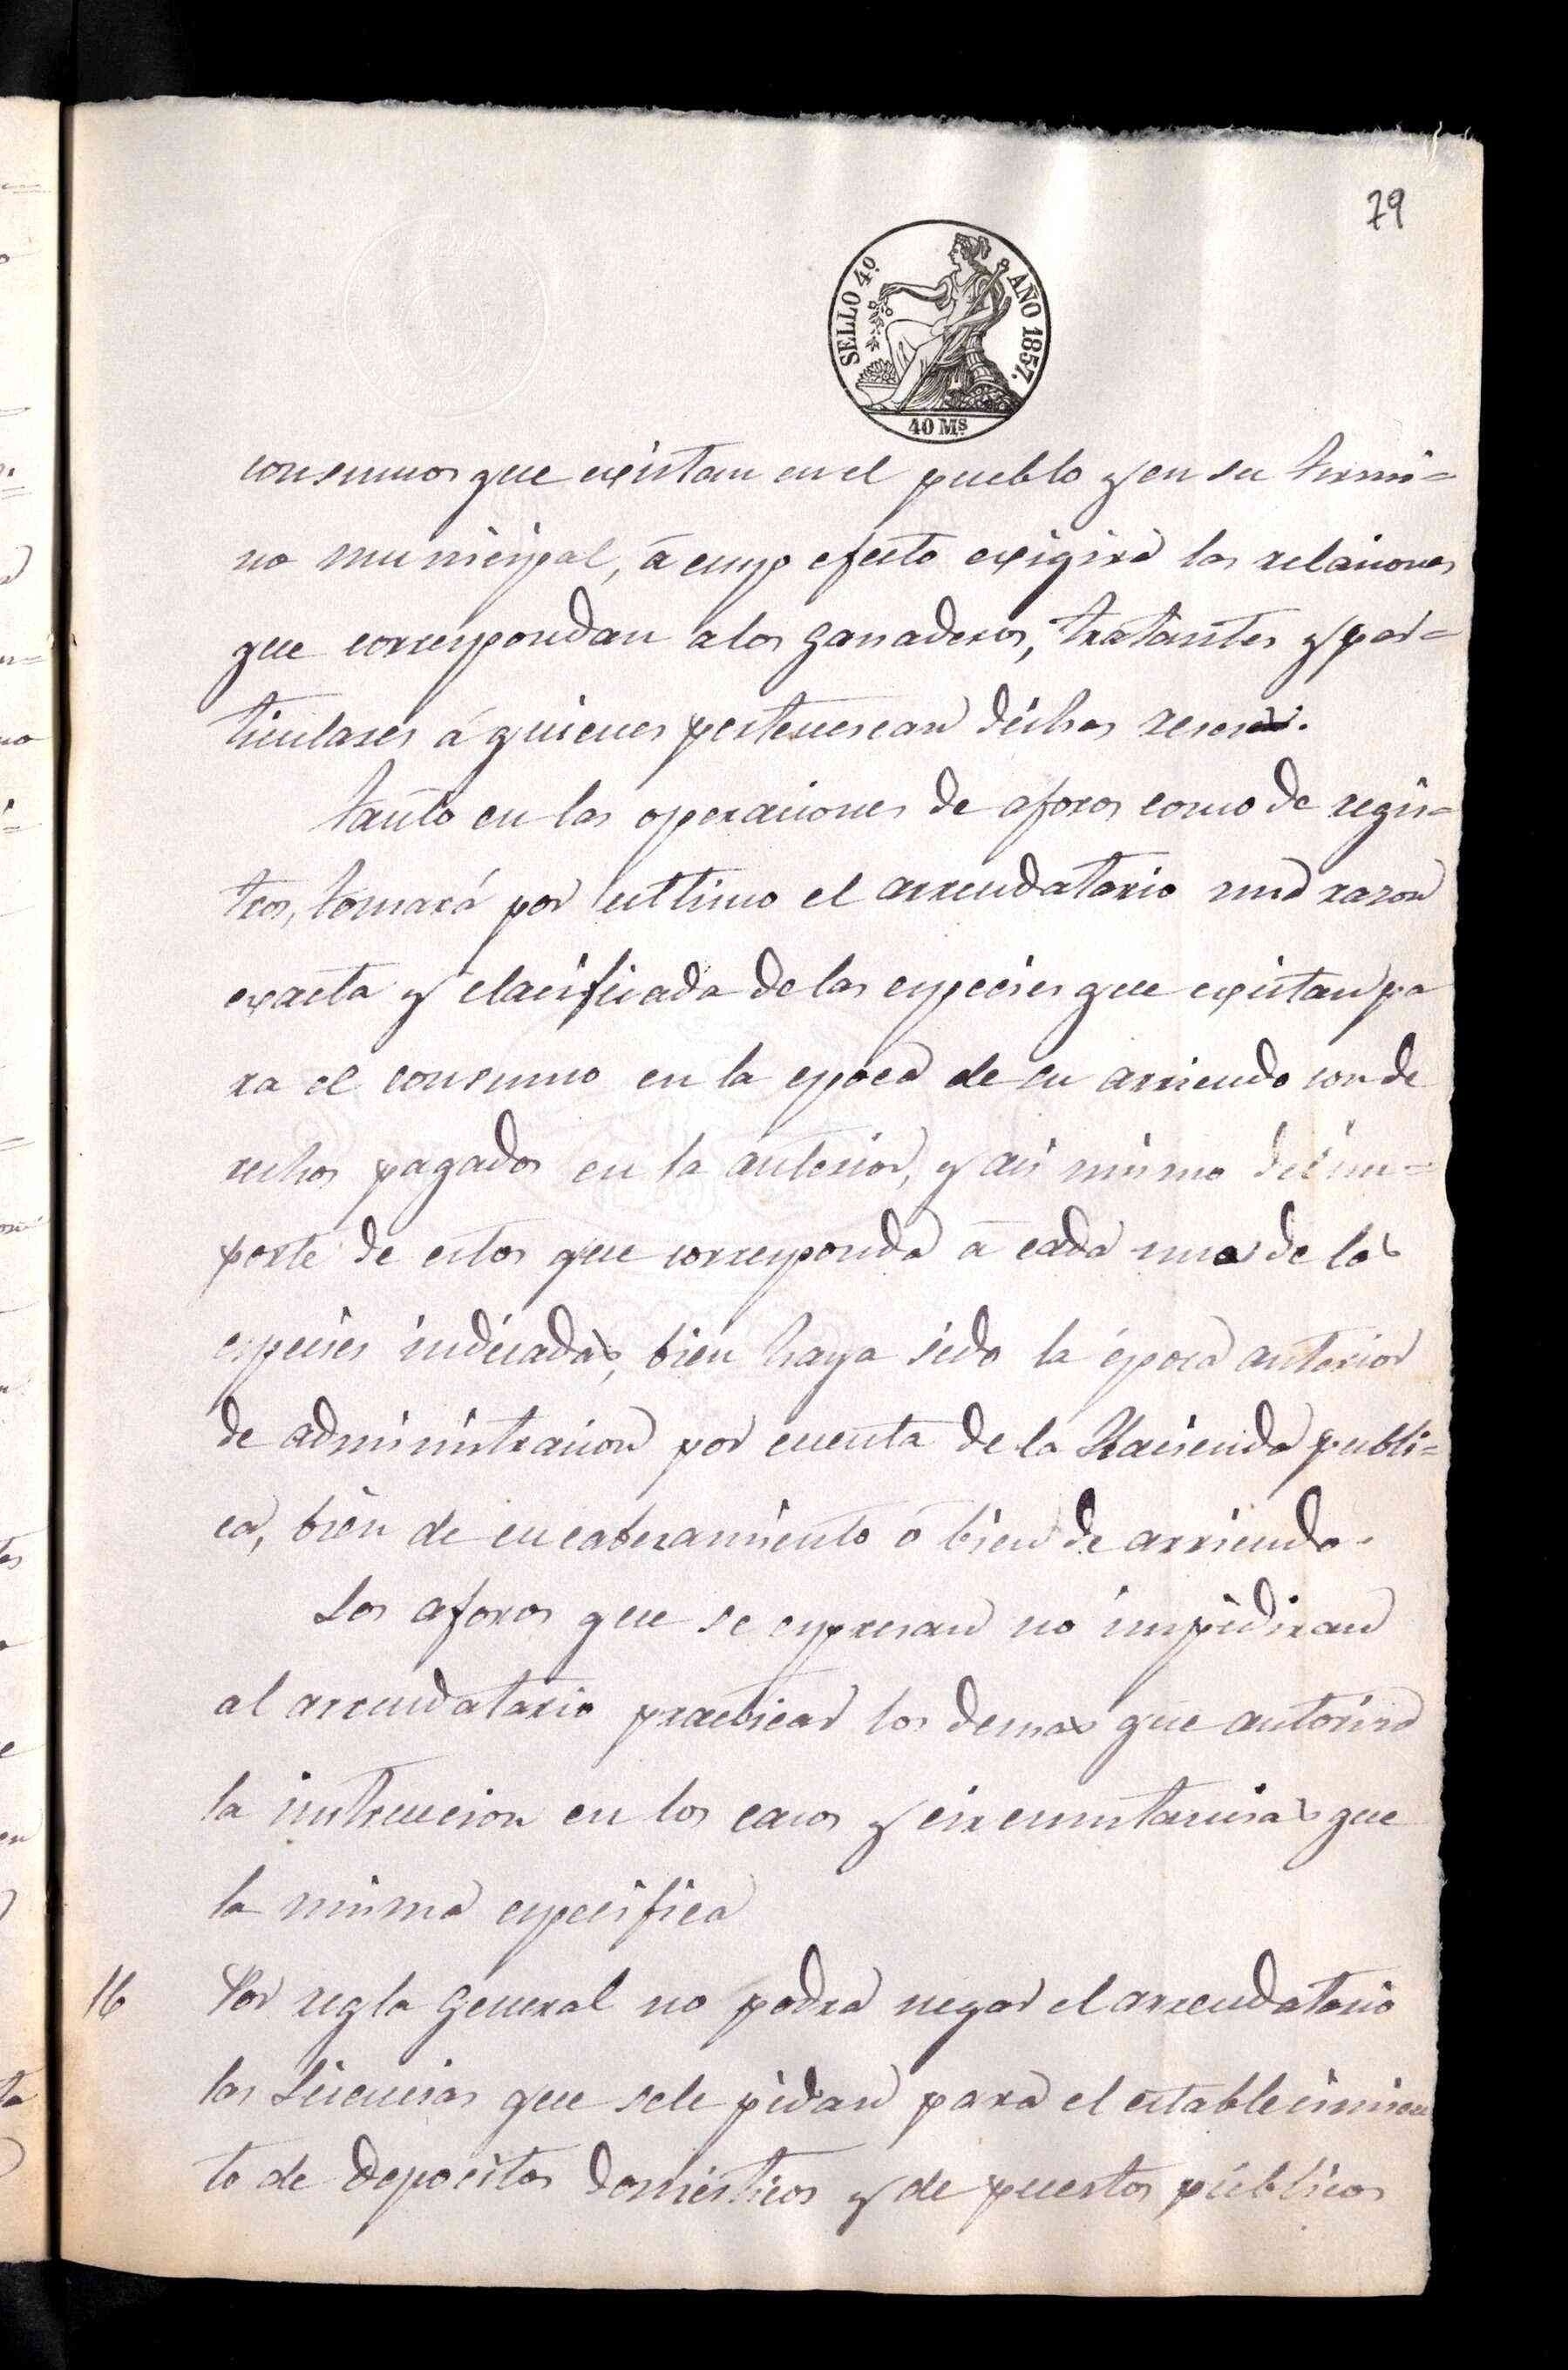 79
SELLO 4º AÑO 1857.
40 Ms
consumos que existan en el pueblo y en su termi=
no municipal, á cuyo efecto exigirá las relaciones
que correspondan a los ganaderos, tratantes y par=
ticulares á quienes pertenescan dichas reses.
Tanto en las operaciones de aforos como de regis=
tros, tomará por ultimo el arrendatario una razon
exacta y clasificada de las especies que existan pa
ra el consumo en la epoca de su arriendo con de
rechos pagados en la anterior, y asi mismo del im=
porte de estos que corresponda á cada una de las
especies indicadas, bien haya sido la época anterior
de administracion por cuenta de la Hacienda publi=
ca, bien de encabezamiento ó bien de arriendo.
Los aforos que se expresan no impidiran
al arrendatario practicar los demas que autoriza
la instruccion en los casos y circunstancias que
la misma especifica
16 Por regla general no podrá negar el arrendatario
las Licencias que sele pidan para el establecimien
to de Depocitos domésticos y de puestos públicos